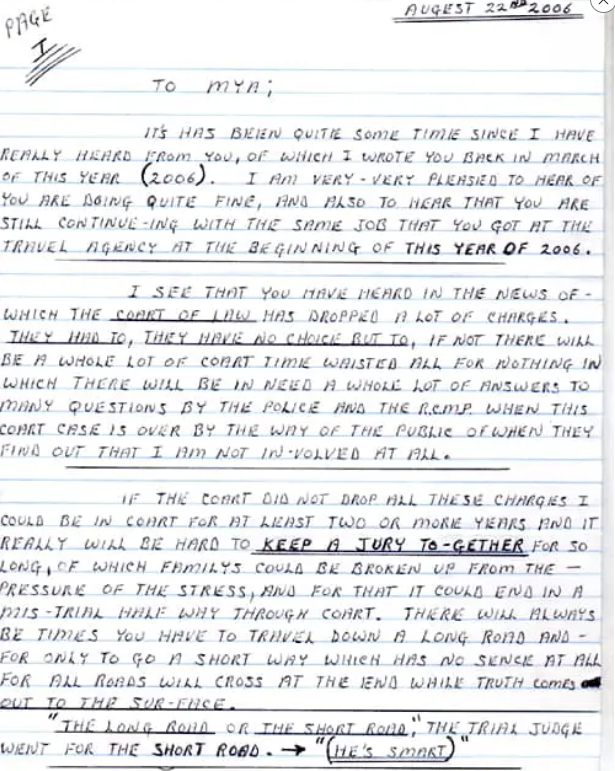 PAGE
1
AUGEST 22ND 2006
TO MYA;
IT'S HAS BEIEN QUITIE SOME TIMIE SINCE I HAVE
REALLY HEARD FROM YOU, OF WHICH I WROTE YOU BACK IN MARCH
OF THIS YEAR (2006). I AM VERY-VERY PLEASIED TO HEAR OF
YOU ARE DOING QUITE FINE, AND ALSO TO HEAR THAT YOU ARE
STILL CONTINUE-ING WITH THE SAME JOB THAT YOU GOT AT THE
TRAVEL AGENCY AT THE BEGINNING OF THIS YEAR OF 2006.
I SEE THAT YOU HAVE HEARD IN THE NEWS OF-
WHICH THE COART OF LAW HAS DROPPED A LOT OF CHARGES.
THEY HAD TO, THEY HAVE NO CHOICE BUT TO, IF NOT THERE WILL
BE A WHOLE LOT OF COART TIME WAISTED ALL FOR NOTHING IN
WHICH THERE WILL BE IN NEED A WHOLE LOT OF ANSWERS TO
MANY QUESTIONS BY THE POLICE AND THE R.C.M.P. WHEN THIS
COART CASE IS OVER BY THE WAY OF THE PUBLIC OF WHEN THEY
FIND OUT THAT I AM NOT IN-VOLVED AT ALL.
IF THE COART DID NOT DROP ALL THESE CHARGIES I
COULD BE IN COART FOR AT LEAST TWO OR MORE YEARS AND IT
REALLY WILL BE HARD TO KEEP A JURY TO-GETHER FOR SO
LONG, OF WHICH FAMILYS COULD BE BROKEN UP FROM THE -
PRESSURE OF THE STRESS, AND FOR THAT IT COULD END IN A
MIS-TRIAL HALF WAY THROUGH COART. THERE WILL ALWAYS
BE TIMES YOU HAVE TO TRAVEL DOWN A LONG ROAD AND -
FOR ONLY TO GO A SHORT WAY WHICH HAS NO SENCE AT ALL
FOR ALL ROADS WILL CROSS AT THE IEND WHILE TRUTH COMES
OUT TO THE SUR-FACE.
"THE LONG ROAD OR THE SHORT ROAD," THE TRIAL JUDGE
WIENT FOR THE SHORT ROAD. → "(HE'S SMART)"